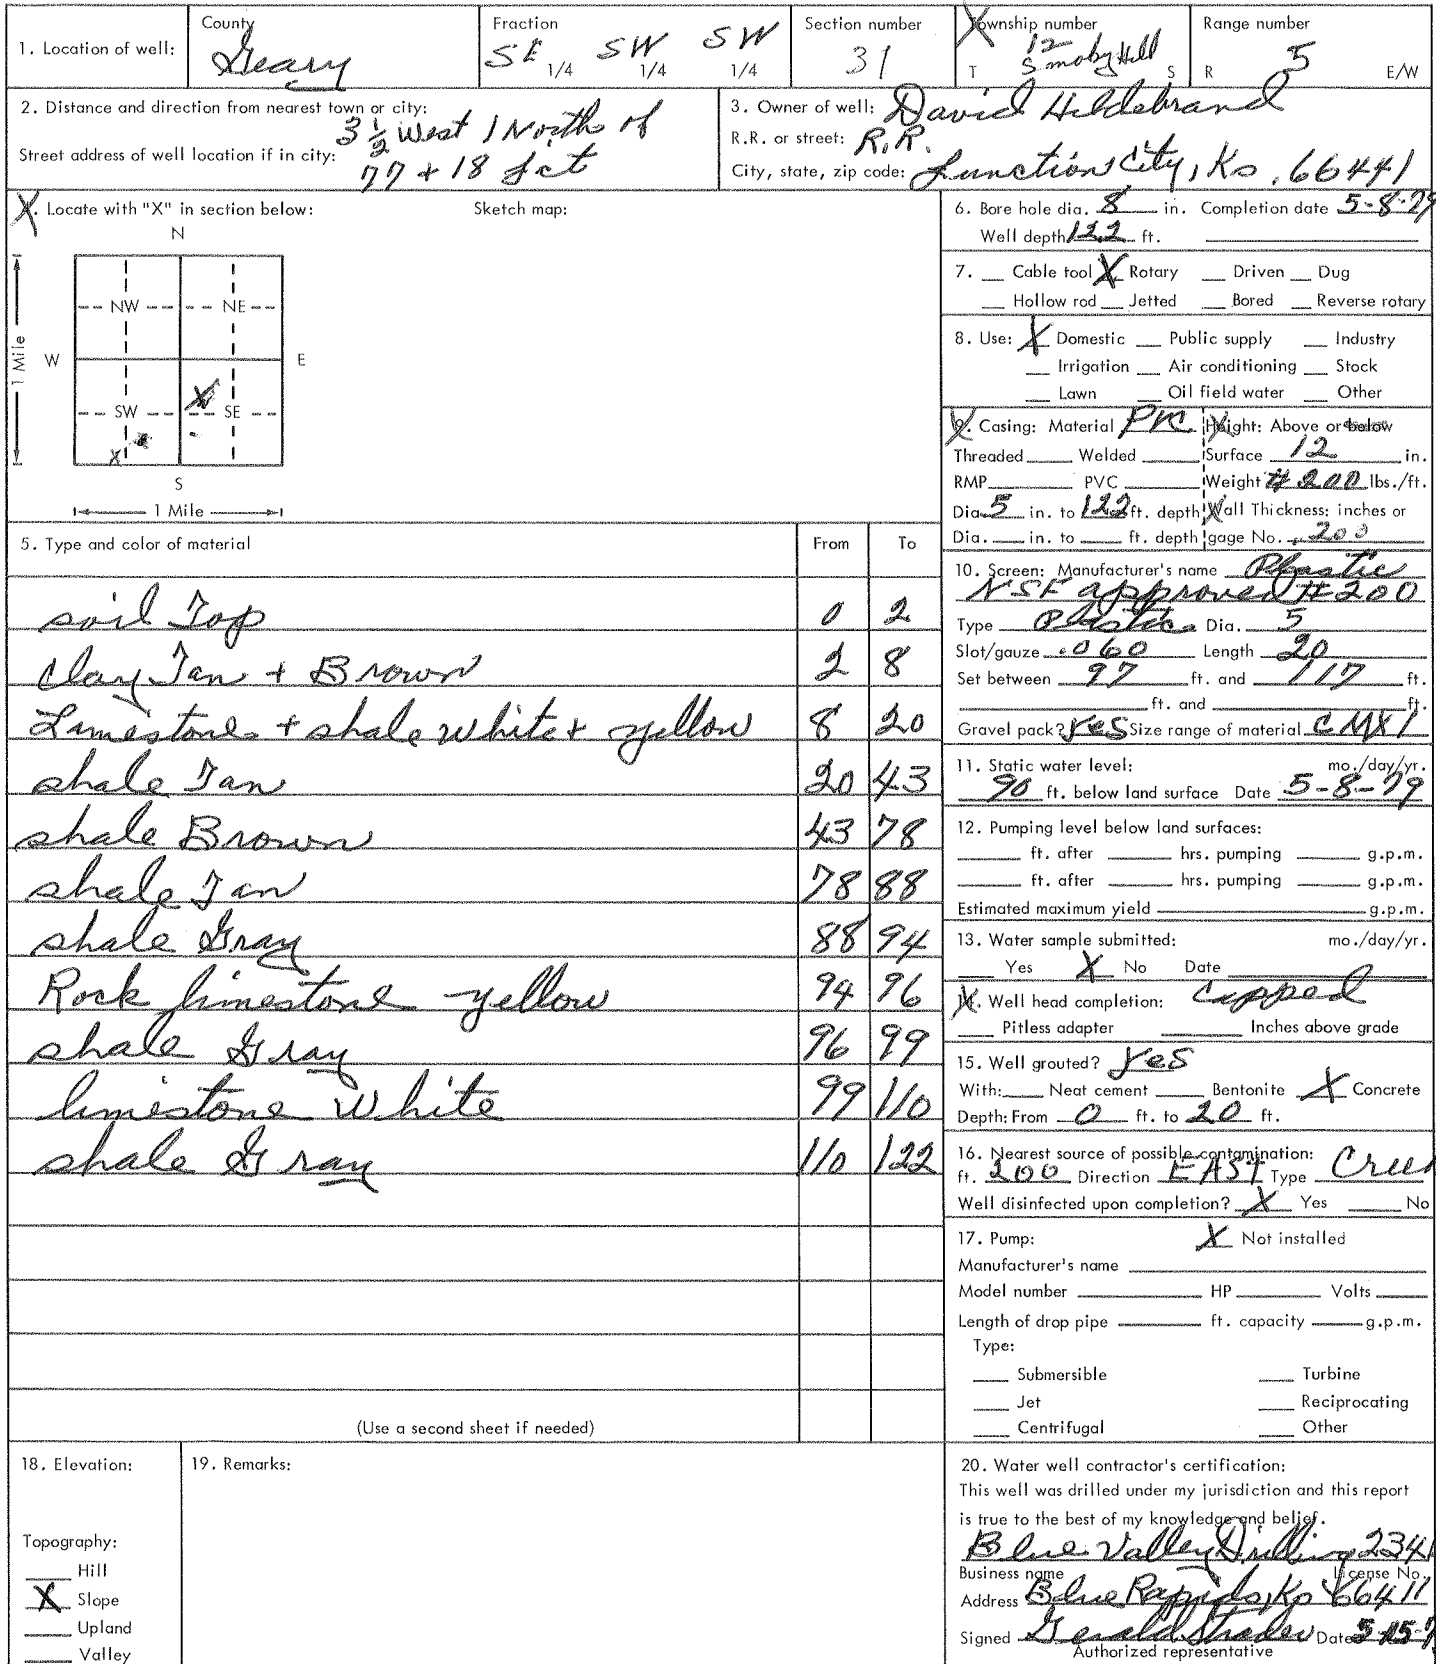 1. Location of well: County Geary Fraction SE 1/4 SW 1/4 SW 1/4 Section number 31 Township number T 12 Smoky Hill S Range number R 5 E/W
2. Distance and direction from nearest town or city: 3 1/2 West 1 North of
Street address of well location if in city: 77 + 18 Jct
3. Owner of well: David Hildebrand
R.R. or street: R.R.
City, state, zip code: Junction City, Ks. 66441
4. Locate with "X" in section below: Sketch map:
N
NW NE
W E
1 Mile
SW SE
X
S
1 Mile
5. Type and color of material From To
soil Top 0 2
clay Tan + Brown 2 8
Limestone + shale white + yellow 8 20
shale Tan 20 43
shale Brown 43 78
shale Tan 78 88
shale Gray 88 94
Rock limestone yellow 94 96
shale Gray 96 99
limestone White 99 110
shale Gray 110 122
(Use a second sheet if needed)
6. Bore hole dia. 8 in. Completion date 5-8-79
Well depth 122 ft.
7. Cable tool X Rotary Driven Dug
Hollow rod Jetted Bored Reverse rotary
8. Use: X Domestic Public supply Industry
Irrigation Air conditioning Stock
Lawn Oil field water Other
9. Casing: Material PVC Height: Above or below
Threaded Welded Surface 12 in.
RMP PVC Weight # 200 lbs./ft.
Dia. 5 in. to 122 ft. depth Wall Thickness: inches or
Dia. in. to ft. depth gage No. .200
10. Screen: Manufacturer's name Plastic
NSF approved #200
Type Plastic Dia. 5
Slot/gauze .060 Length 20
Set between 97 ft. and 117 ft.
ft. and ft.
Gravel pack? Yes Size range of material CMX1
11. Static water level: mo./day/yr.
90 ft. below land surface Date 5-8-79
12. Pumping level below land surfaces:
ft. after hrs. pumping g.p.m.
ft. after hrs. pumping g.p.m.
Estimated maximum yield g.p.m.
13. Water sample submitted: mo./day/yr.
Yes X No Date
14. Well head completion: Capped
Pitless adapter Inches above grade
15. Well grouted? Yes
With: Neat cement Bentonite X Concrete
Depth: From 0 ft. to 20 ft.
16. Nearest source of possible contamination:
ft. 200 Direction EAST Type Creek
Well disinfected upon completion? X Yes No
17. Pump: X Not installed
Manufacturer's name
Model number HP Volts
Length of drop pipe ft. capacity g.p.m.
Type:
Submersible Turbine
Jet Reciprocating
Centrifugal Other
18. Elevation:
Topography:
Hill
X Slope
Upland
Valley
19. Remarks:
20. Water well contractor's certification:
This well was drilled under my jurisdiction and this report
is true to the best of my knowledge and belief.
Blue Valley Drilling 234
Business name License No.
Address Blue Rapids, Ks 66411
Signed Gerald Strader Date 5-15-7
Authorized representative